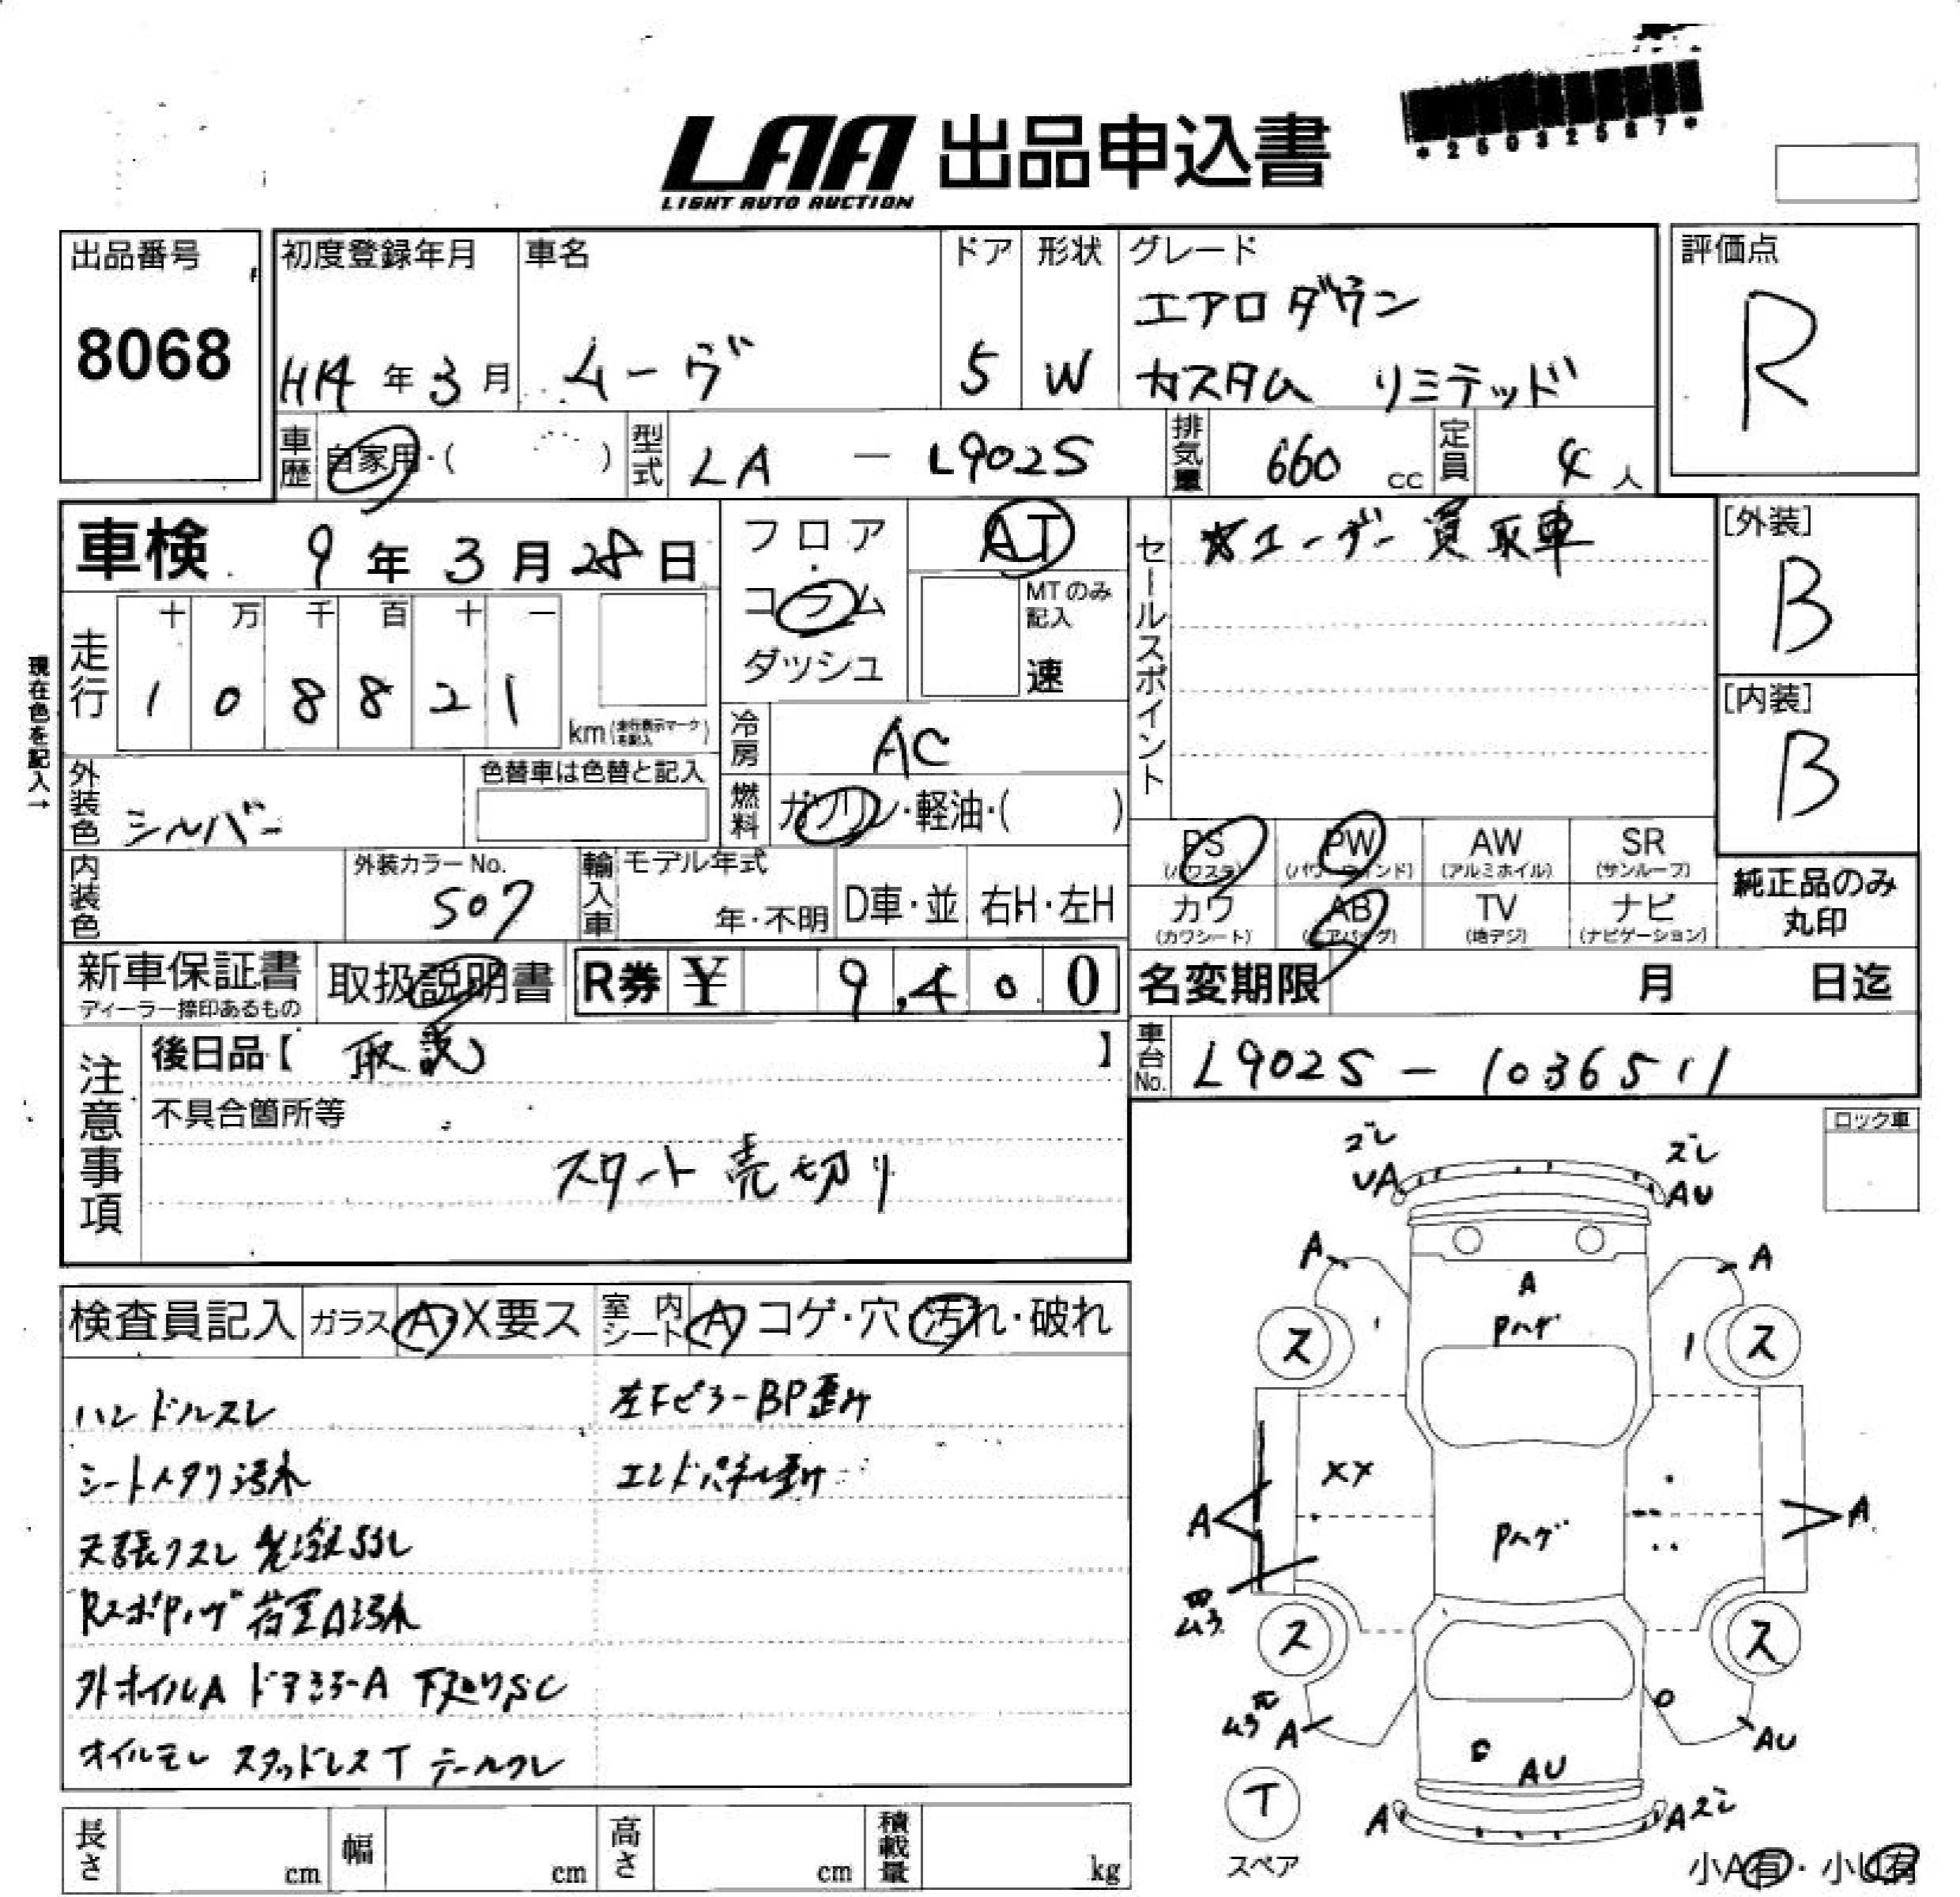 LAA 出品申込書
LIGHT AUTO AUCTION
*25032587*
出品番号
8068
初度登録年月
H14年3月
車名
ムーヴ
ドア
5
形状
W
グレード
エアロダウン
カスタム リミテッド
評価点
R
車歴
自家用・( )
型式
LA － L902S
排気量
660 cc
定員
4人
車検 9年3月28日
フロア
・
コラム
ダッシュ
AT
MTのみ
記入
速
セールスポイント
☆ユーザー買取車
[外装]
B
[内装]
B
現在色を記入→
走行
十 万 千 百 十 一
1 0 8 8 2 1
km(走行表示マークを記入)
冷房
AC
燃料
ガソリン・軽油・( )
外装色
シルバー
色替車は色替と記入
PS
(パワステ)
PW
(パワーウインド)
AW
(アルミホイル)
SR
(サンルーフ)
カワ
(カワシート)
AB
(エアバッグ)
TV
(地デジ)
ナビ
(ナビゲーション)
純正品のみ
丸印
内装色
外装カラーNo.
S07
輸入車
モデル年式
年・不明
D車・並
右H・左H
新車保証書
ディーラー捺印あるもの
取扱説明書
R券 ¥ 9,400
名変期限 月 日迄
車台No.
L902S－1036511
注意事項
後日品【 取説 】
不具合箇所等
スタート売切り
ロック車
検査員記入
ガラス A・X要ス
室内シート A コゲ・穴・汚れ・破れ
ハンドルスレ
シートヘタリ汚れ
外ホイルA ドアミラーA 下廻りSC
オイルモレ スタッドレスT テールワレ
左Fピラー BP歪み
エンドパネル歪み
ズレ
UA
ズレ
AU
A
A
A
Pハゲ
ス
ス
XX
A
A
Pハゲ
ムラ
ス
ス
ムラ
A
AU
AU
T
スペア
A
A ズレ
小A有・小U有
長さ cm
幅 cm
高さ cm
積載量 kg